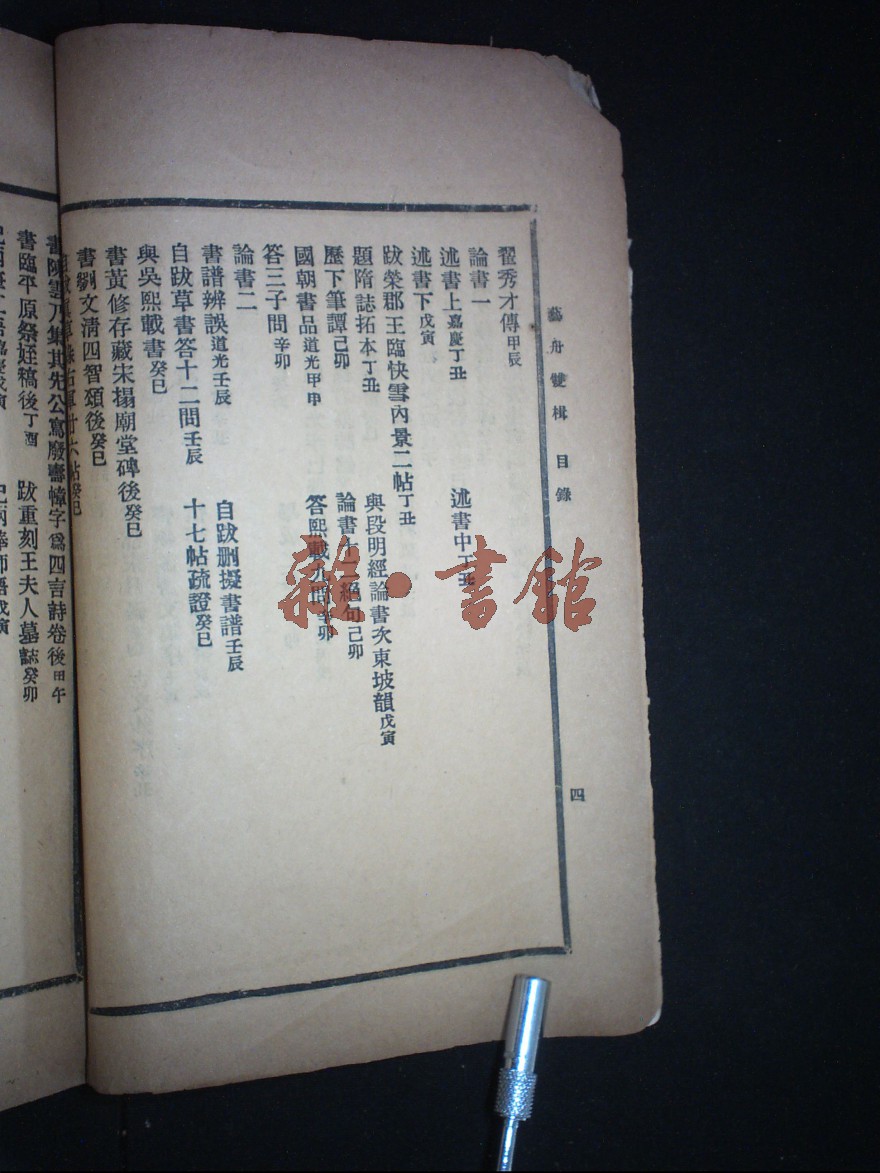 藝舟雙楫 目錄 四
翟秀才傳甲辰
論書一
述書上嘉慶丁丑 述書中丁丑
述書下戊寅
跋榮郡王臨快雪內景二帖丁丑 與段明經論書次東坡韻戊寅
題隋誌拓本丁丑 論書十二絕句己卯
歷下筆譚己卯
國朝書品道光甲申 答熙載九問辛卯
答三子問辛卯
論書二
書譜辨誤道光壬辰 自跋刪擬書譜壬辰
自跋草書答十二問壬辰 十七帖疏證癸巳
與吳熙載書癸巳
書黃修存藏宋搨廟堂碑後癸巳
書劉文清四智頌後癸巳
右軍廿六帖癸巳
書陳雲乃集其先公寫廢壽幛字爲四言詩卷後甲午
書臨平原祭姪稿後丁酉 跋重刻王夫人墓誌癸卯
雜·書館